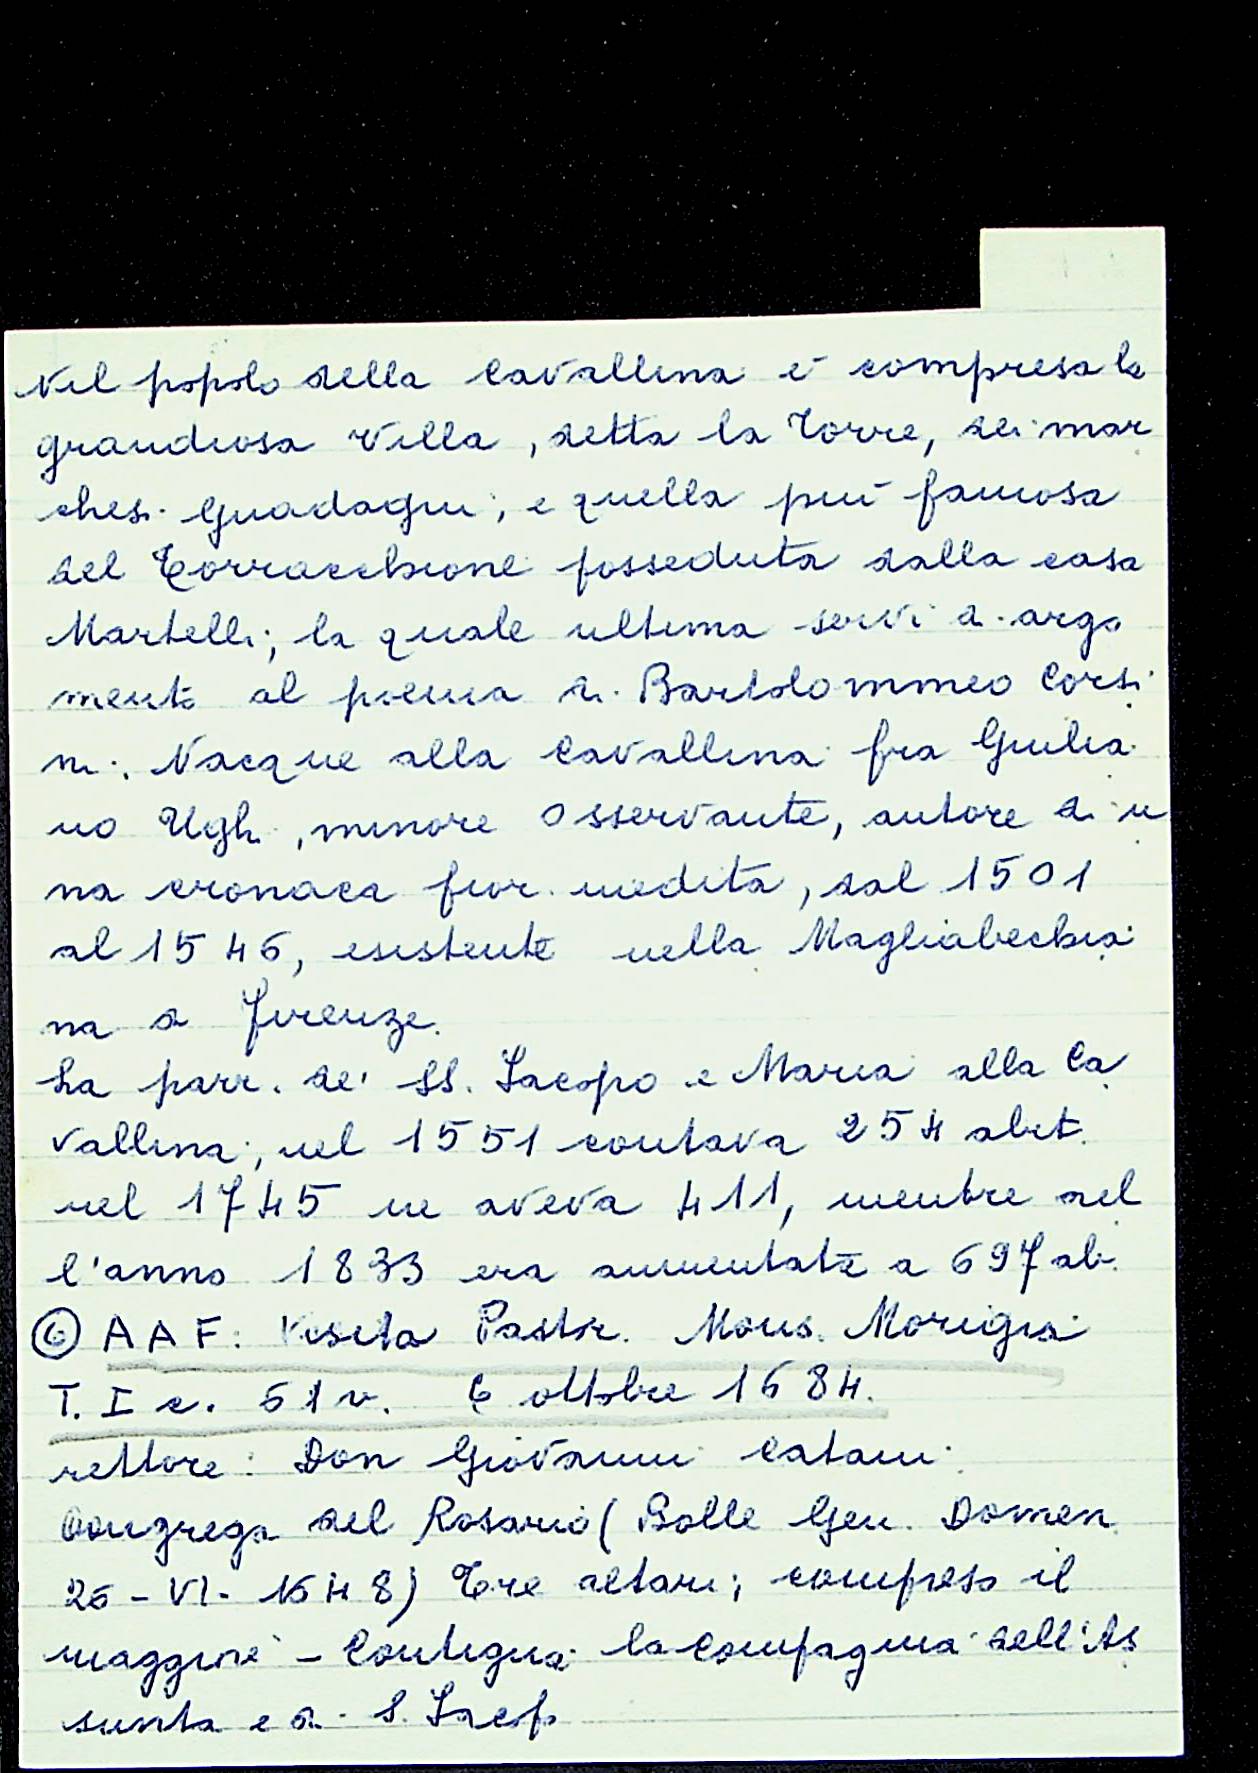 Nel popolo della Cavallina è compresa la
grandiosa villa, detta la Torre, dei mar
chesi Guadagni; e quella più famosa
del Torracchione posseduta dalla casa
Martelli; la quale ultima servì di argo
mento al poema di Bartolommeo Corsi
ni. Nacque alla Cavallina fra Giulia
no Ughi, minore Osservante, autore di u
na cronaca fior. inedita, dal 1501
al 1546, esistente nella Magliabechia
na a Firenze.
La parr. de' SS. Iacopo e Maria alla Ca
vallina; nel 1551 contava 254 abit.
nel 1745 ne aveva 411, mentre nel
l'anno 1833 era aumentata a 697 ab.
⑥ AAF: Visita Pastor. Mons. Morigia
T. I c. 51v. 6 ottobre 1684.
rettore: Don Giovanni Catani.
Congrega del Rosario (Bolle Gen. Domen.
26-VI-1648) Tre altari; compreso il
maggiore - Contigua la Compagnia dell'As
sunta e di S. Iacopo